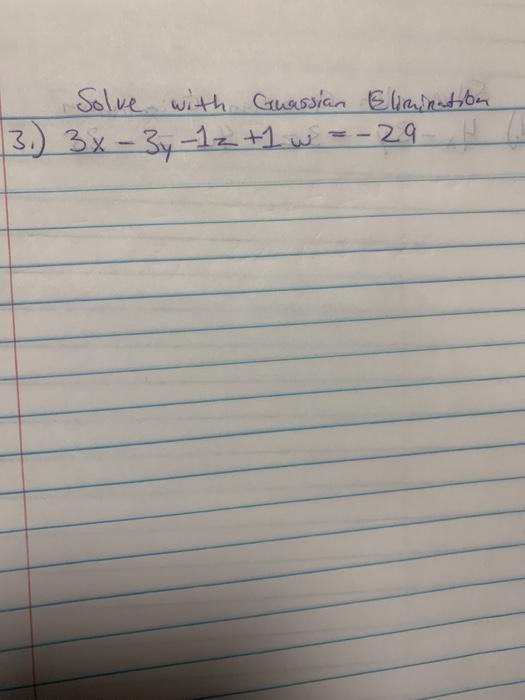 Solve with Guassian Elimination
3.) 3x - 3y - 1z + 1w = - 29